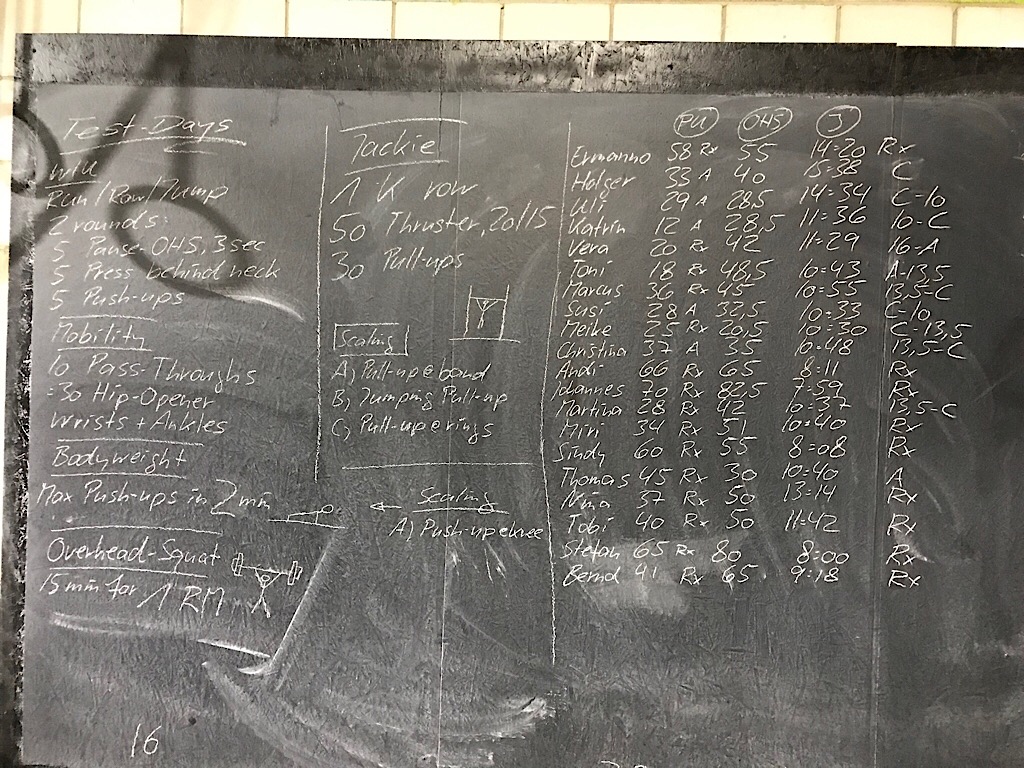 Test-Days
WU
Run/Row/Jump
2 rounds:
5 Pause-OHS, 3sec
5 Press behind neck
5 Push-ups
Mobility
10 Pass-Throughs
:30 Hip-Opener
Wrists + Ankles
Bodyweight
Max Push-ups in 2min
Overhead-Squat
15min for 1 RM
16
Jackie
1 K row
50 Thruster, 20/15
30 Pull-ups
Scaling
A) Pull-up@band
B) Jumping Pull-up
C) Pull-up@rings
Scaling
A) Push-up@knee
PU OHS J
Ermanno 58 Rx 55 14:20 Rx
Holger 33 A 40 15:58 C
Uli 29 A 28,5 14:34 C-10
Katrin 12 A 28,5 11:36 10-C
Vera 20 Rx 42 11:29 16-A
Toni 18 Rx 48,5 10:43 A-13,5
Marcus 36 Rx 45 10:55 13,5-C
Susi 28 A 32,5 10:33 C-10
Meike 25 Rx 20,5 10:30 C-13,5
Christina 37 A 35 10:48 13,5-C
Andi 66 Rx 65 8:11 Rx
Johannes 70 Rx 82,5 7:59 Rx
Martina 28 Rx 42 10:37 13,5-C
Miri 34 Rx 51 10:40 Rx
Sindy 60 Rx 55 8:08 Rx
Thomas 45 Rx 30 10:40 A
Nina 37 Rx 50 13:14 Rx
Tobi 40 Rx 50 11:42 Rx
Stefan 65 Rx 80 8:00 Rx
Bernd 41 Rx 65 9:18 Rx